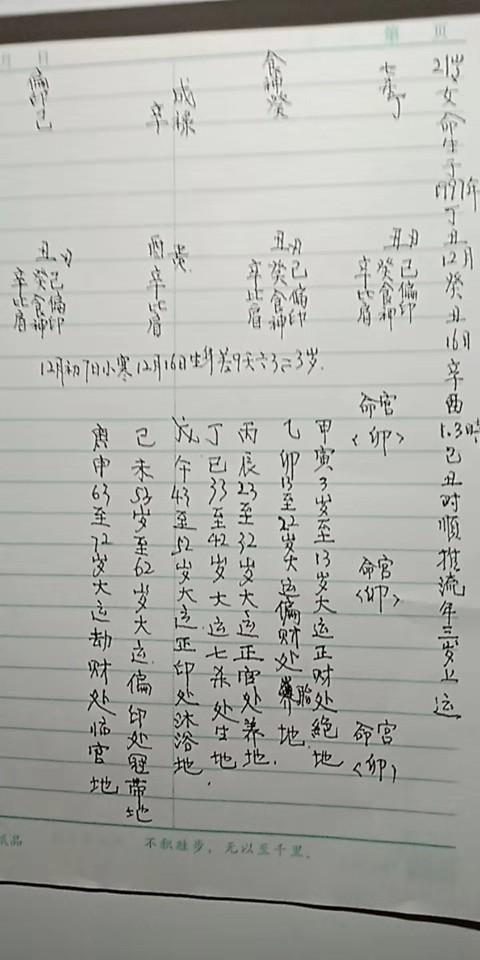 第 页
月 日
21岁女命生于1997年丁丑12月癸丑16日辛酉1.3時己丑时顺推流年三岁上运
七杀丁
食神癸
成禄
辛
偏印己
丑月
己偏印
癸食神
辛比肩
丑月
己偏印
癸食神
辛比肩
酉
辛比肩
丑月
己偏印
癸食神
辛比肩
12月初7日小寒12月16日生年差9天六3二3岁.
命宫
<卯>
命宫
<卯>
命宫
<卯>
甲寅3岁至13岁大运正财处絕地
乙卯13至22岁大运偏财处胎地.
丙辰23至32岁大运正官处养地.
丁巳33至42岁大运七杀处生地.
戊午43至52岁大运正印处沐浴地
己未53岁至62岁大运偏印处冠带地
庚申63至72岁大运劫财处临官地
纸品
不积跬步，无以至千里。